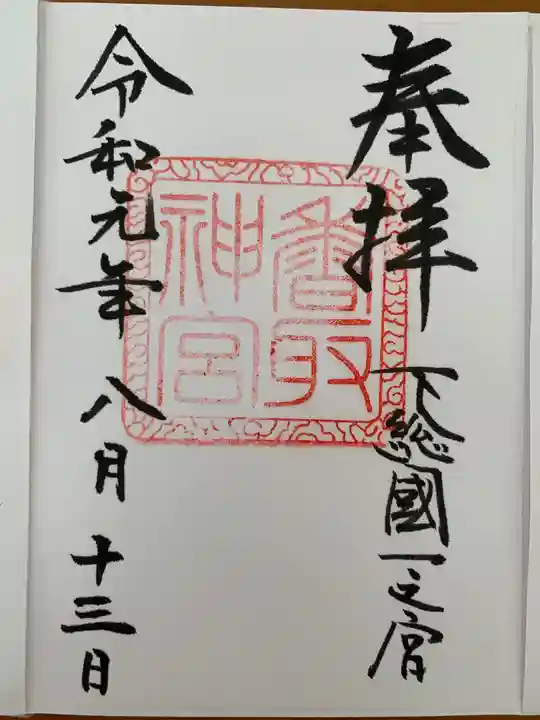 奉拝
下総國一之宮
香取
神宮
令和元年 八月 十三日